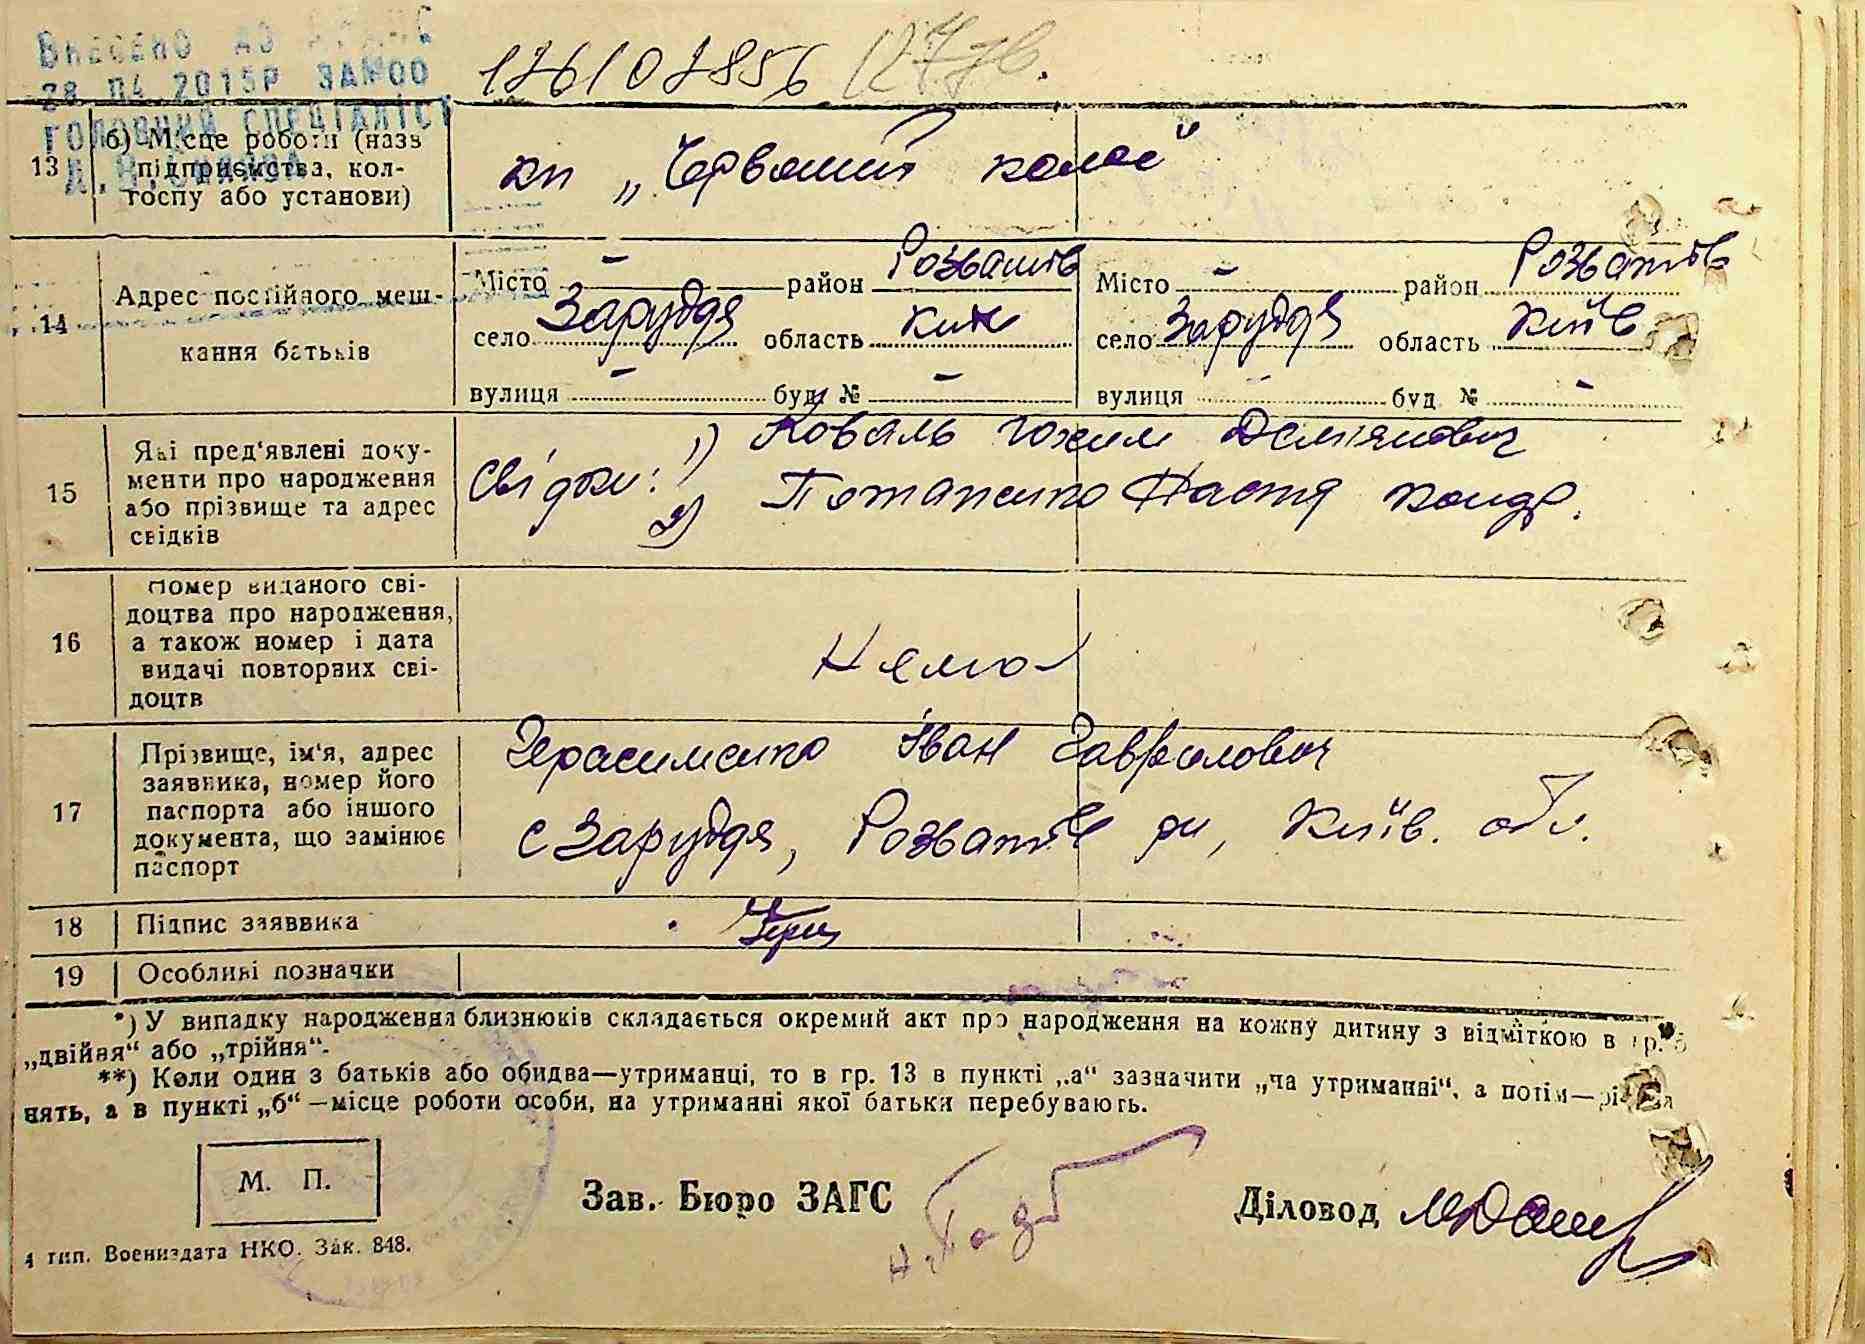 Внесено до
28 04 2015р
головний спеціаліст
13 б) Місце роботи (назв
підприємства, кол-
госпу або установи)
кп „Червоний колос"
14 Адрес постійного меш-
кання батьків
Місто – район Розватів
село Заруддя область Київ
вулиця – буд № –
Місто – район Розватів
село Заруддя область Київ
вулиця буд № –
15 Які пред'явлені доку-
менти про народження
або прізвище та адрес
свідків
Свідки: 1) Коваль Юхим Дем'янович
2) Потапенко Настя Кондр.
16 Номер виданого сві-
доцтва про народження,
а також номер і дата
видачі повторних сві-
доцтв
Нема
17 Прізвище, ім'я, адрес
заявника, номер його
паспорта або іншого
документа, що замінює
паспорт
Герасименко Іван Гаврилович
с Заруддя, Розватів рн, Київ. обл.
18 Підпис заявника
19 Особливі позначки
*) У випадку народження близнюків складається окремий акт про народження на кожну дитину з відміткою в гр.
„двійня" або „трійня".
**) Коли один з батьків або обидва—утриманці, то в гр. 13 в пункті „а" зазначити „на утриманні", а потім—рід за
нять, а в пункті „б"—місце роботи особи, на утриманні якої батьки перебувають.
М. П.
Зав. Бюро ЗАГС
Діловод
4 тип. Воениздата НКО. Зак. 848.